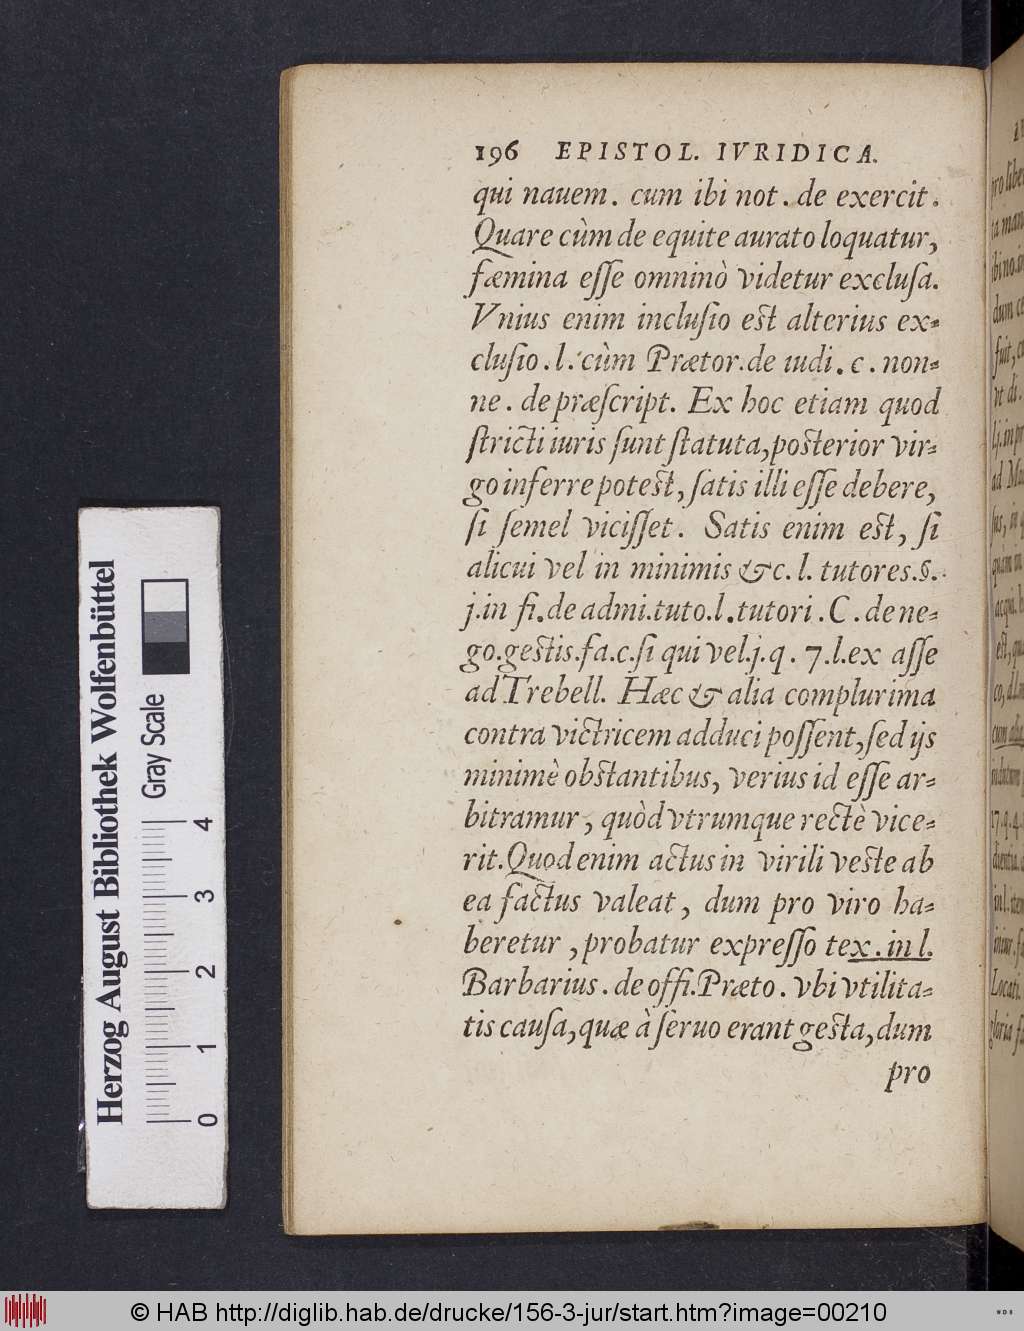 196 EPISTOL. IVRIDICA.
qui nauem. cum ibi not. de exercit.
Quare cùm de equite aurato loquatur,
fæmina eſſe omninò videtur excluſa.
Vnius enim incluſio est alterius ex-
cluſio. l. cùm Prætor. de iudi. c. non-
ne. de præſcript. Ex hoc etiam quod
ſtricti iuris ſunt ſtatuta, posterior vir-
go inferre potest, ſatis illi eſſe debere,
ſi ſemel viciſſet. Satis enim est, ſi
alicui vel in minimis &c. l. tutores. §.
j. in fi. de admi. tuto. l. tutori. C. de ne-
go. gestis. fa. c. ſi qui vel. j. q. 7. l. ex aſſe
ad Trebell. Hæc & alia complurima
contra victricem adduci poſſent, ſed ijs
minimè obstantibus, verius id eſſe ar-
bitramur, quòd vtrumque rectè vice-
rit. Quod enim actus in virili veste ab
ea factus valeat, dum pro viro ha-
beretur, probatur expreſſo tex. in l.
Barbarius. de offi. Præto. vbi vtilita-
tis cauſa, quæ à ſeruo erant gesta, dum
pro
Herzog August Bibliothek Wolfenbüttel
Gray Scale
0 1 2 3 4
© HAB http://diglib.hab.de/drucke/156-3-jur/start.htm?image=00210